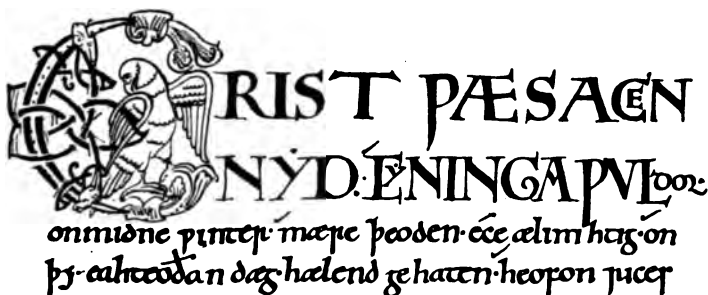 CRIST ǷÆS ACEN
NẎD·CẎNINGA ǷVLdor:
onmidne ƿinter· mǽre þeoden· éce ælmihtig· ón
þy· eahteoðan dæg· hælend gehaten· heofon rices